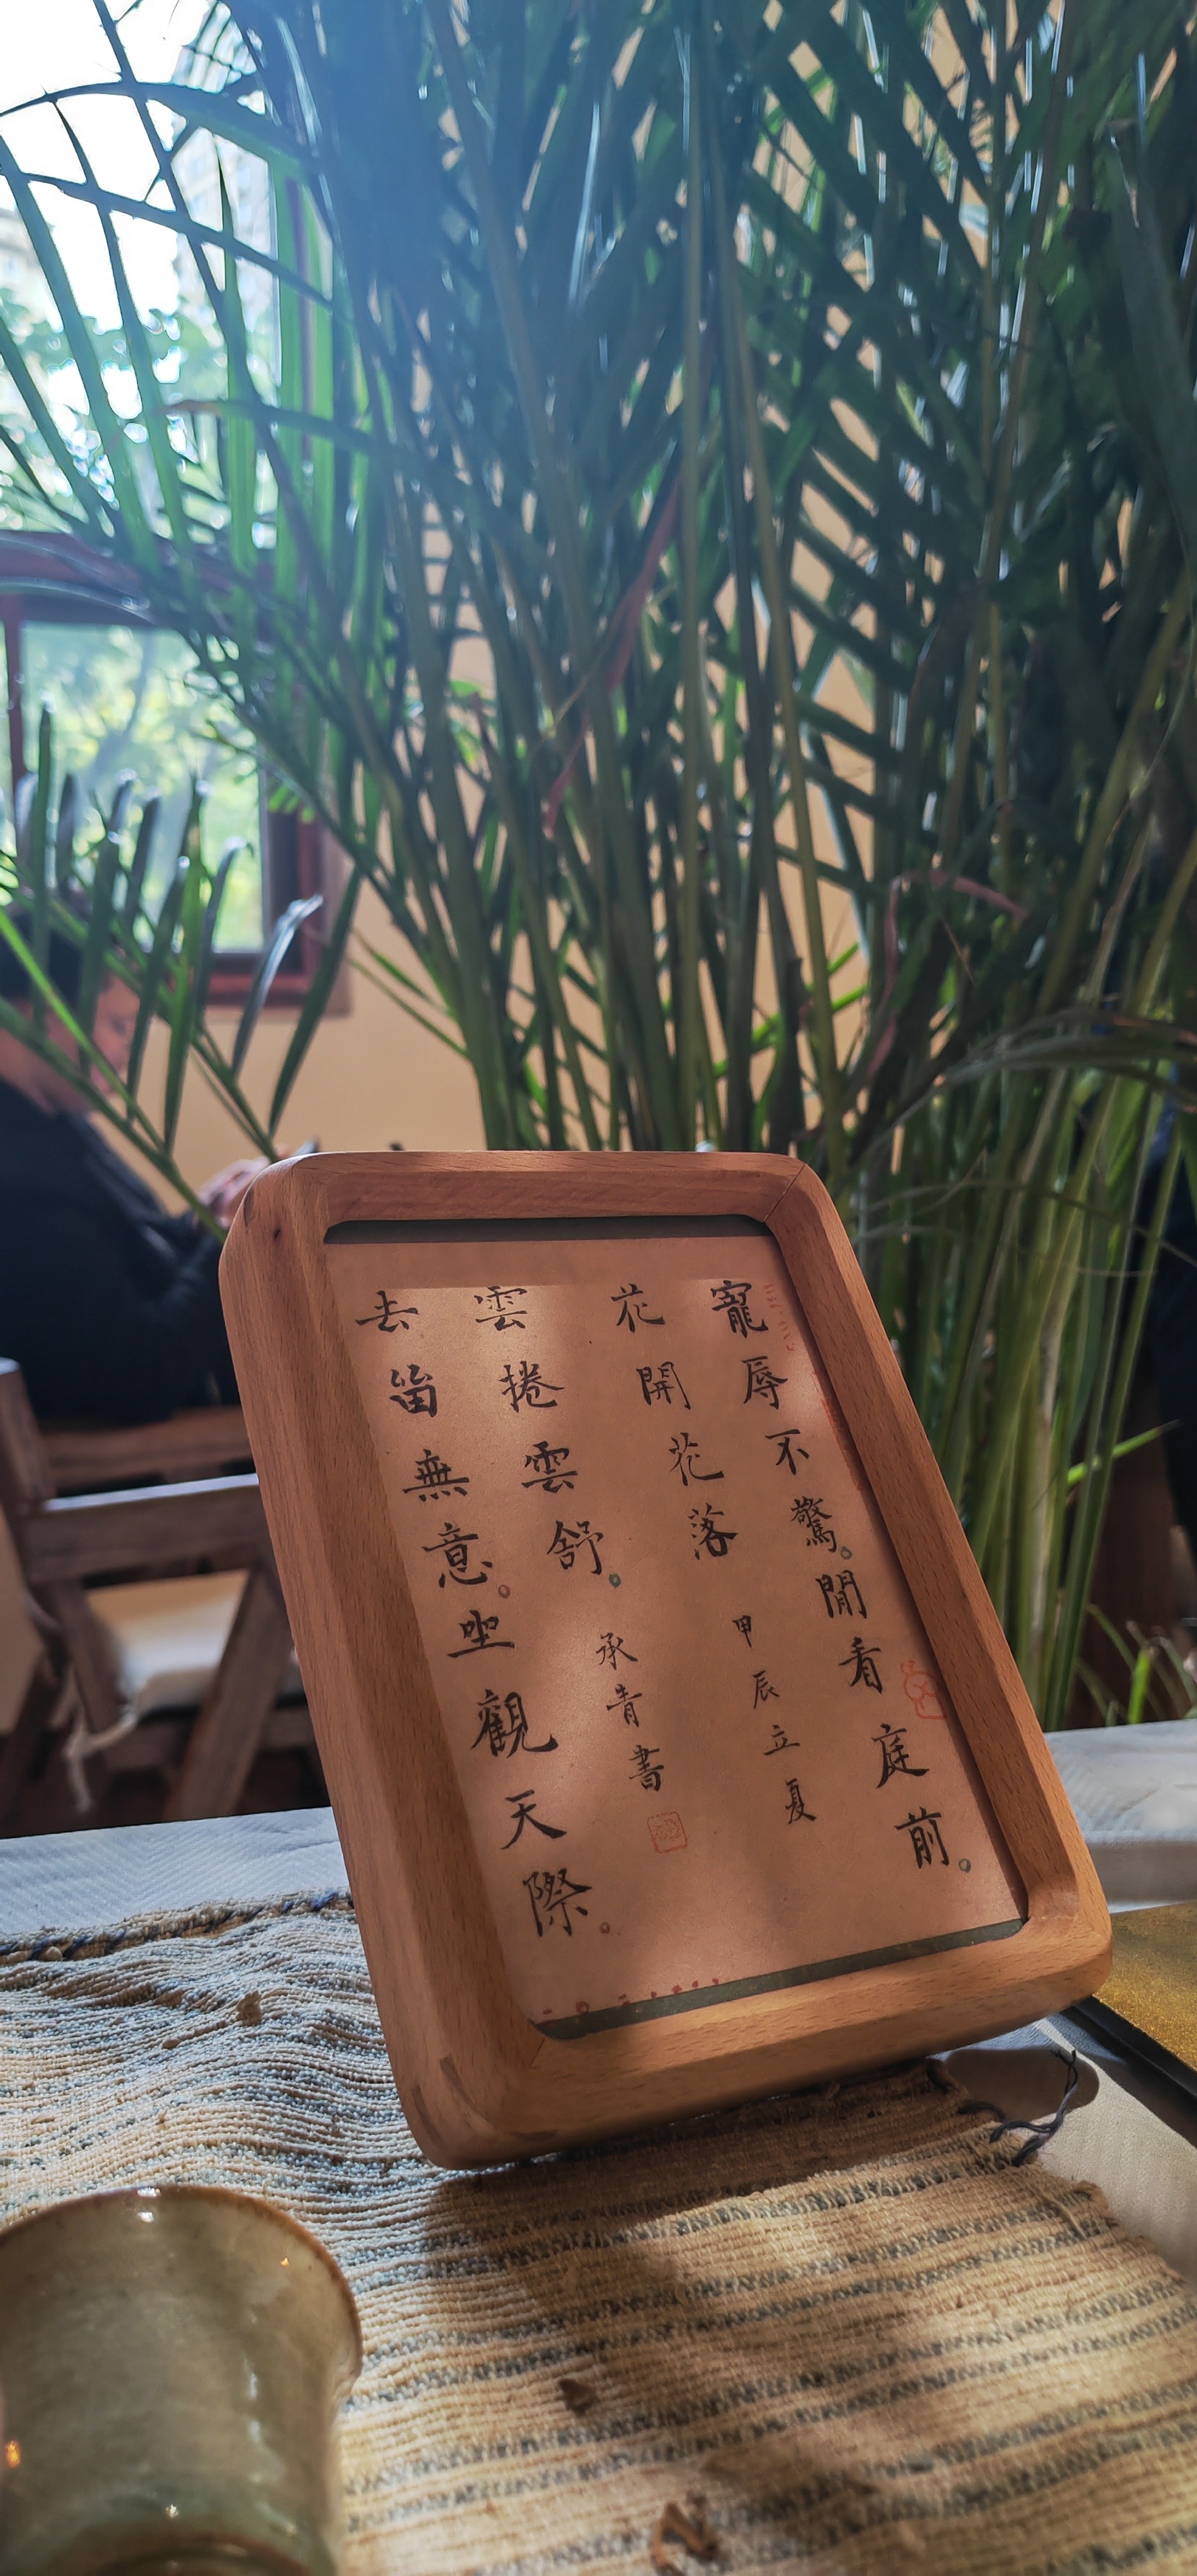 寵辱不驚。閒看庭前。
花開花落 甲辰立夏
雲捲雲舒。承青書
去留無意。坐觀天際。